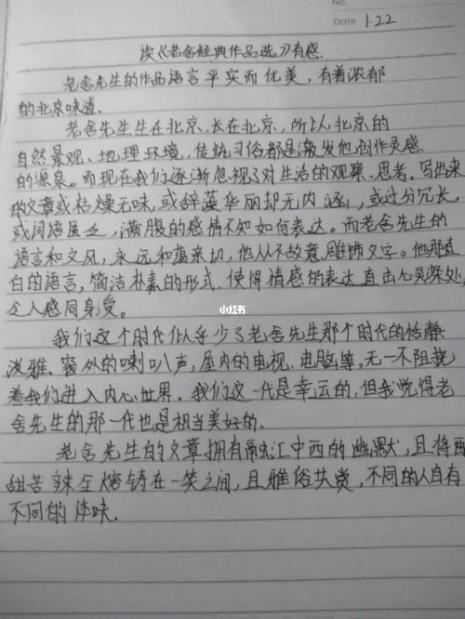 No.
Date 1.22
读《老舍经典作品选》有感.
老舍先生的作品语言平实而优美，有着浓郁
的北京味道.
老舍先生生在北京，长在北京，所以北京的
自然景观、地理环境，传统习俗都是激发他创作灵感
的源泉。而现在我们逐渐忽视了对生活的观察、思考，写出来
的文章或枯燥无味，或辞藻华丽却无内涵，或过分冗长，
或词语匮乏，满腹的感情不知如何表达。而老舍先生的
语言和文风，永远和蔼亲切，他从不故意雕饰文字。他那直
白的语言，简洁朴素的形式，使得情感的表达直击心灵深处，
令人感同身受。
小红书
我们这个时代似乎少了老舍先生那个时代的恬静
淡雅、窗外的喇叭声，屋内的电视、电脑等，无一不阻挠
着我们进入内心世界。我们这一代是幸运的，但我觉得老
舍先生的那一代也是相当美好的.
老舍先生的文章拥有融汇中西的幽默，且将酸
甜苦辣全熔铸在一笑之间，且雅俗共赏，不同的人自有
不同的体味.